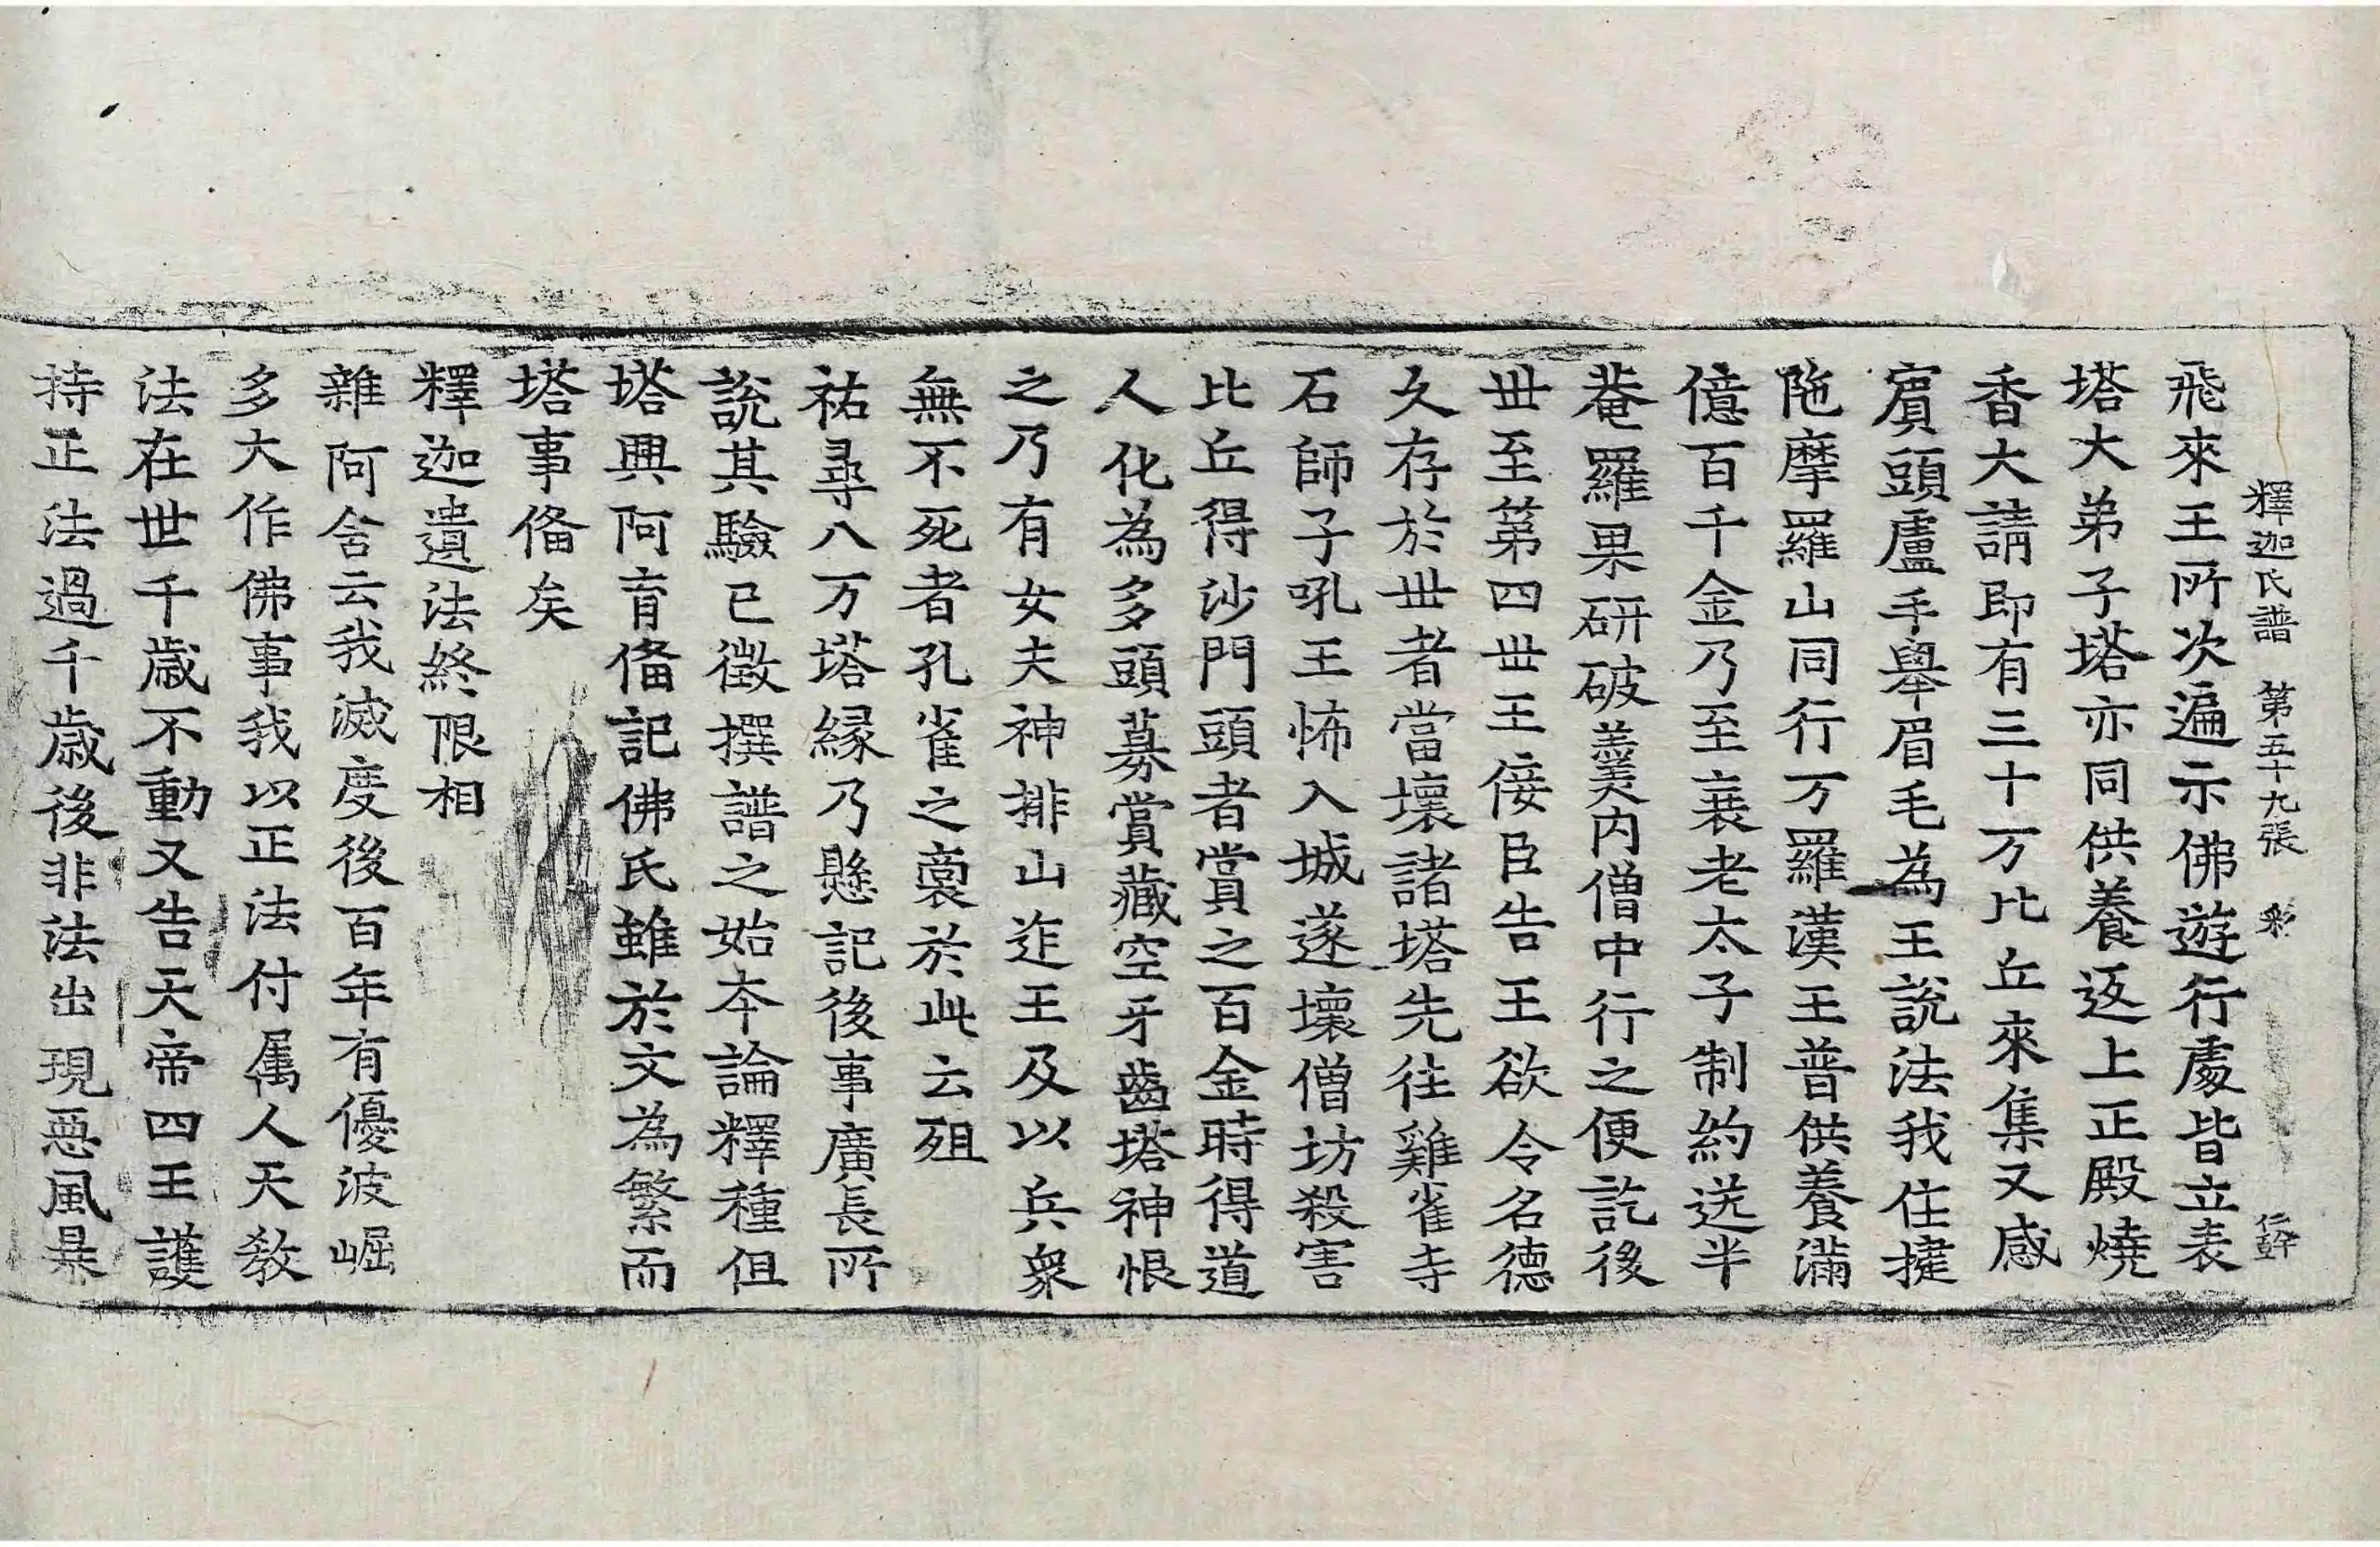 釋迦氏譜 第五十九張 彩 仁幹
飛來王所次遍示佛遊行處皆立表
塔大弟子塔亦同供養返上正殿燒
香大請即有三十万比丘來集又感
賓頭盧手舉眉毛為王說法我住揵
陁摩羅山同行万羅漢王普供養滿
億百千金乃至衰老太子制約送半
菴羅果研破羹内僧中行之便訖後
丗至第四丗王侫臣告王欲令名德
久存於丗者當壞諸塔先往雞雀寺
石師子吼王怖入城遂壞僧坊殺害
比丘得沙門頭者賞之百金時得道
人化為多頭募賞藏空牙齒塔神恨
之乃有女夫神排山迮王及以兵衆
無不死者孔雀之裔於此云殂
祐尋八万塔縁乃懸記後事廣長所
說其驗已徵撰譜之始夲論釋種但
塔興阿育俻記佛氏雖於文為繁而
塔事俻矣
釋迦遺法終限相
雜阿含云我滅度後百年有優波崛
多大作佛事我以正法付属人天敎
法在世千歲不動又告天帝四王護
持正法過千歲後非法出現惡風暴